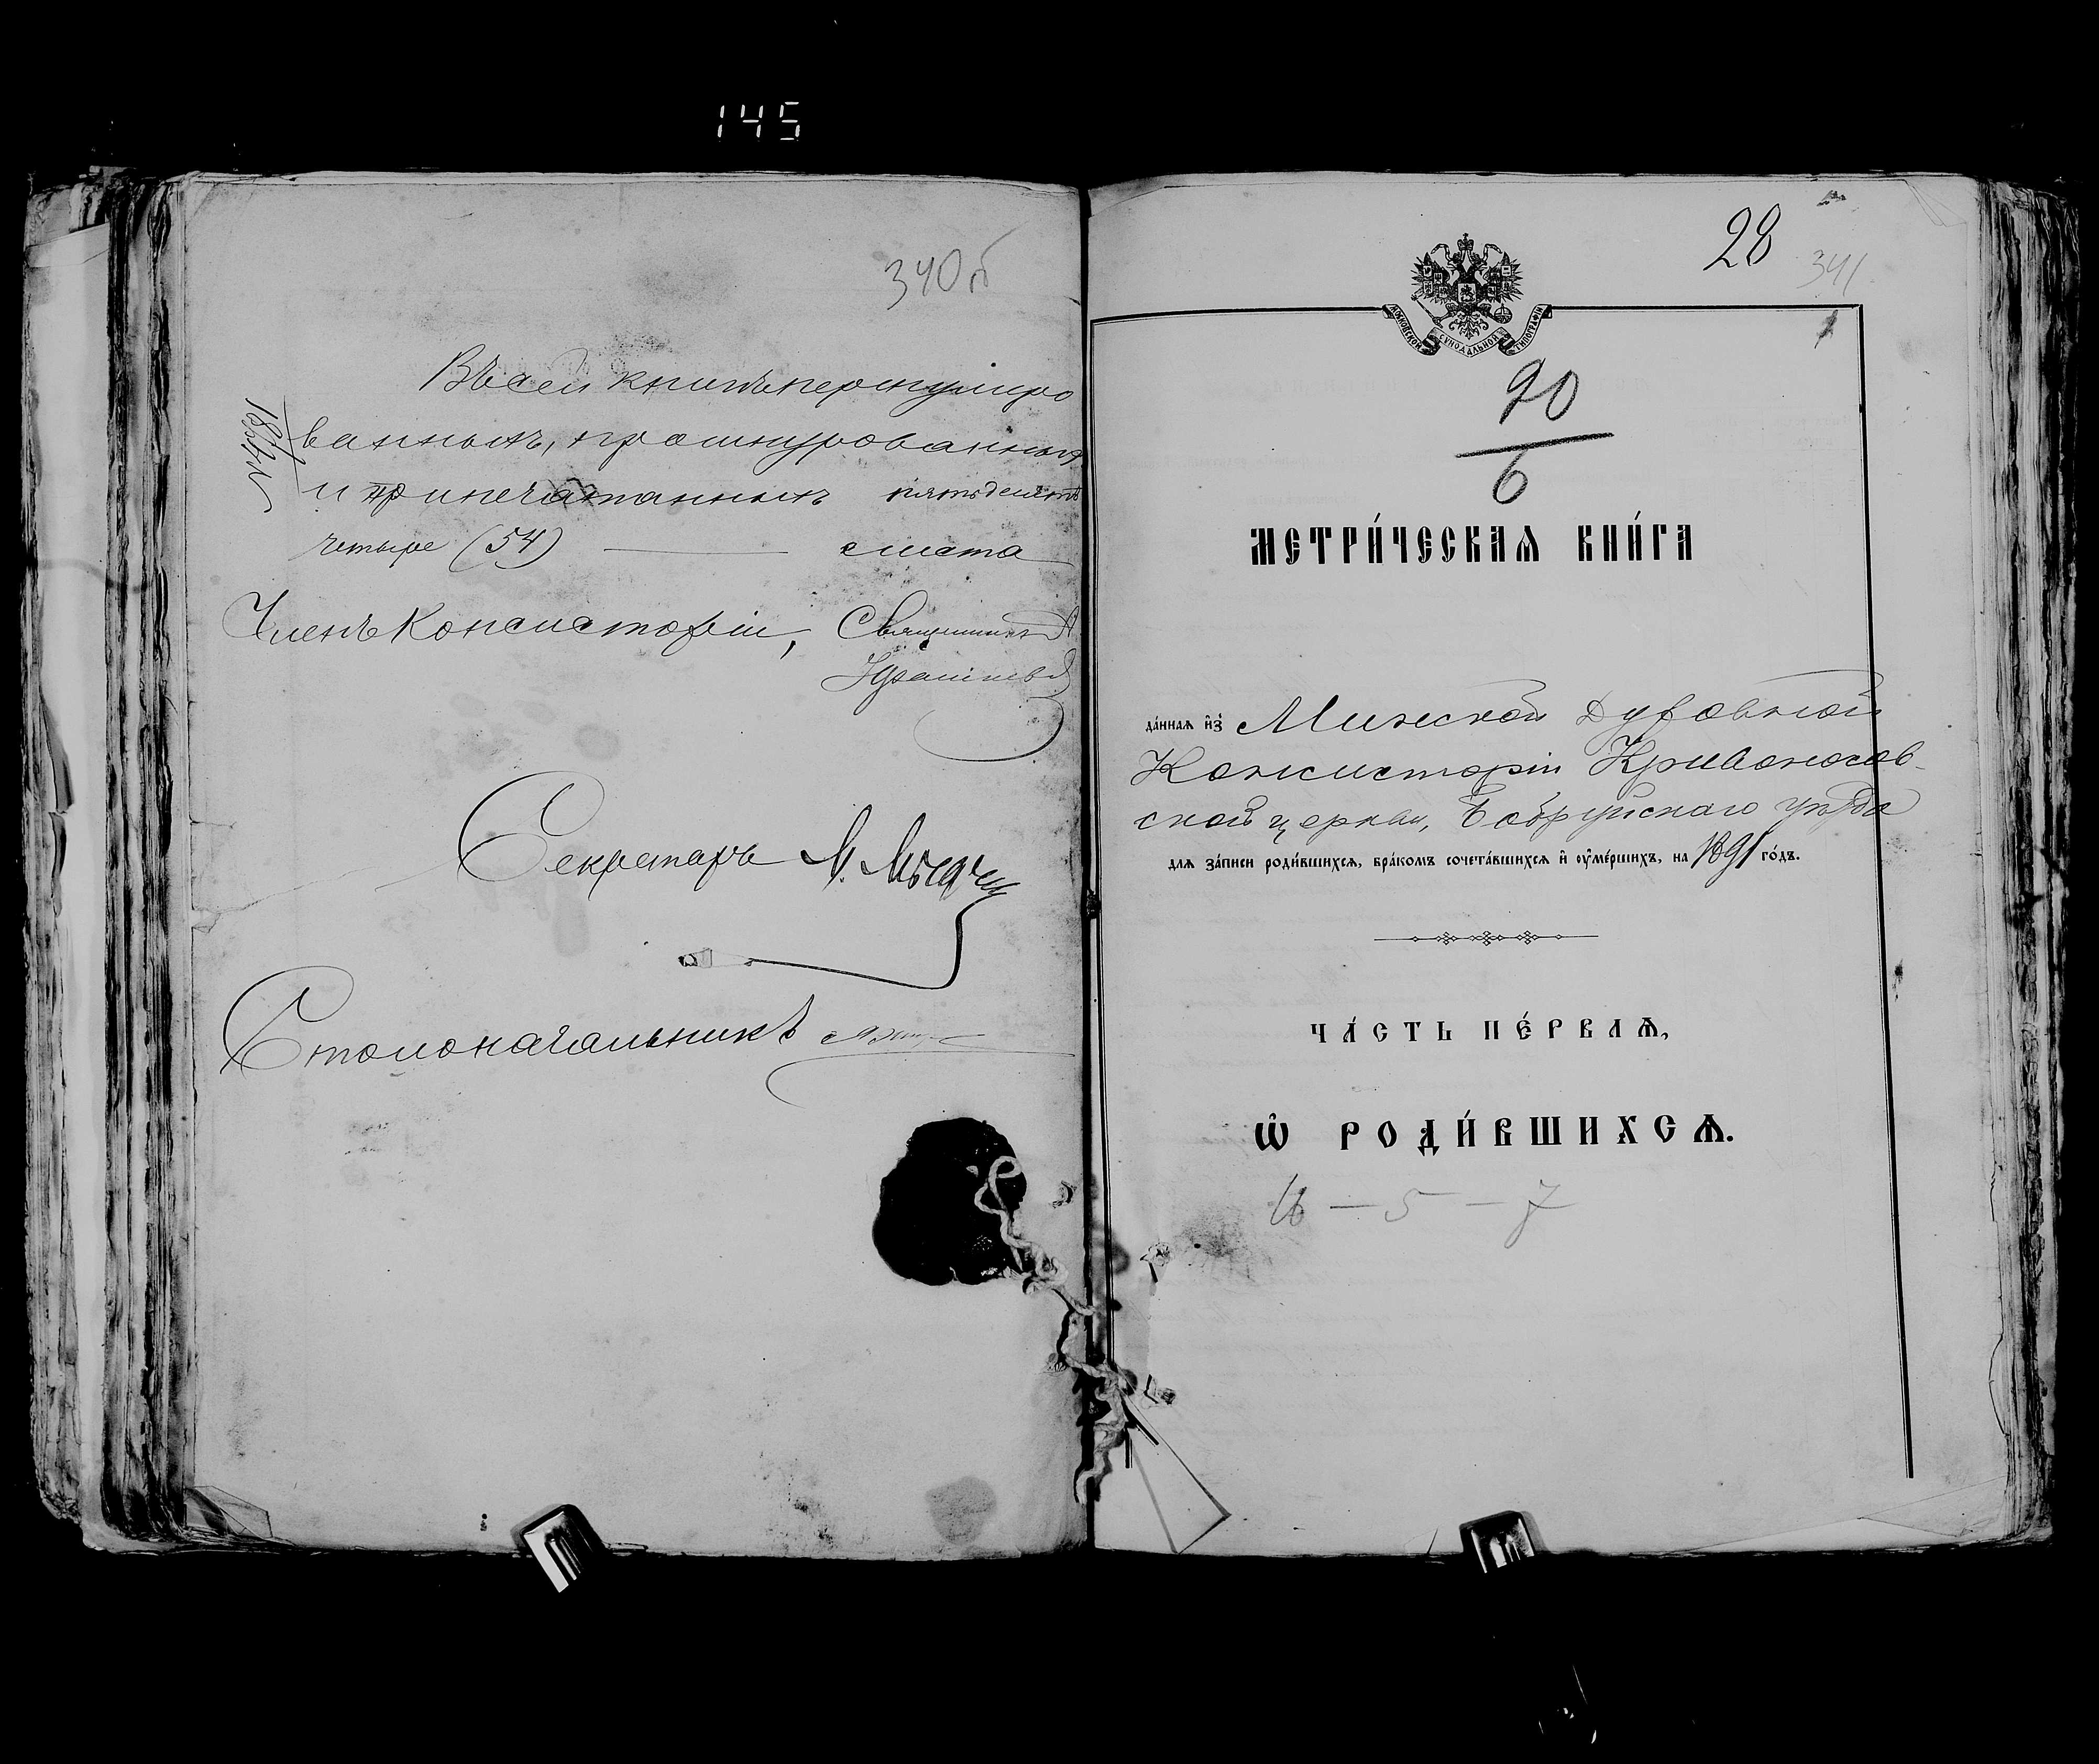 145
340об
Въ сей книгѣ перенумеро
ванныхъ, прошнурованныхъ
и припечатанныхъ пятьдесятъ
четыре (54) — листа
Членъ Консисторіи, Священникъ
Секретарь
Столоначальникъ
28 341
МОСКОВСКОЙ СѴНОДАЛЬНОЙ ТИПОГРАФІИ
90
6
МЕТРИ́ЧЕСКАѦ КНИ́ГА
да́ннаѧ и҆з̾ Минской Духовной
Консисторіи Кривоносов-
ской церкви, Бобруйскаго уѣзда
для за́писи роди́вшихсѧ, бра́комъ сочета́вшихсѧ и҆ ᲂу҆ме́ршихъ, на 1891 го́дъ.
ЧА́СТЬ ПЕ́РВАѦ,
Ѡ҆ РОДИ́ВШИХСѦ.
16 — 5 — 7